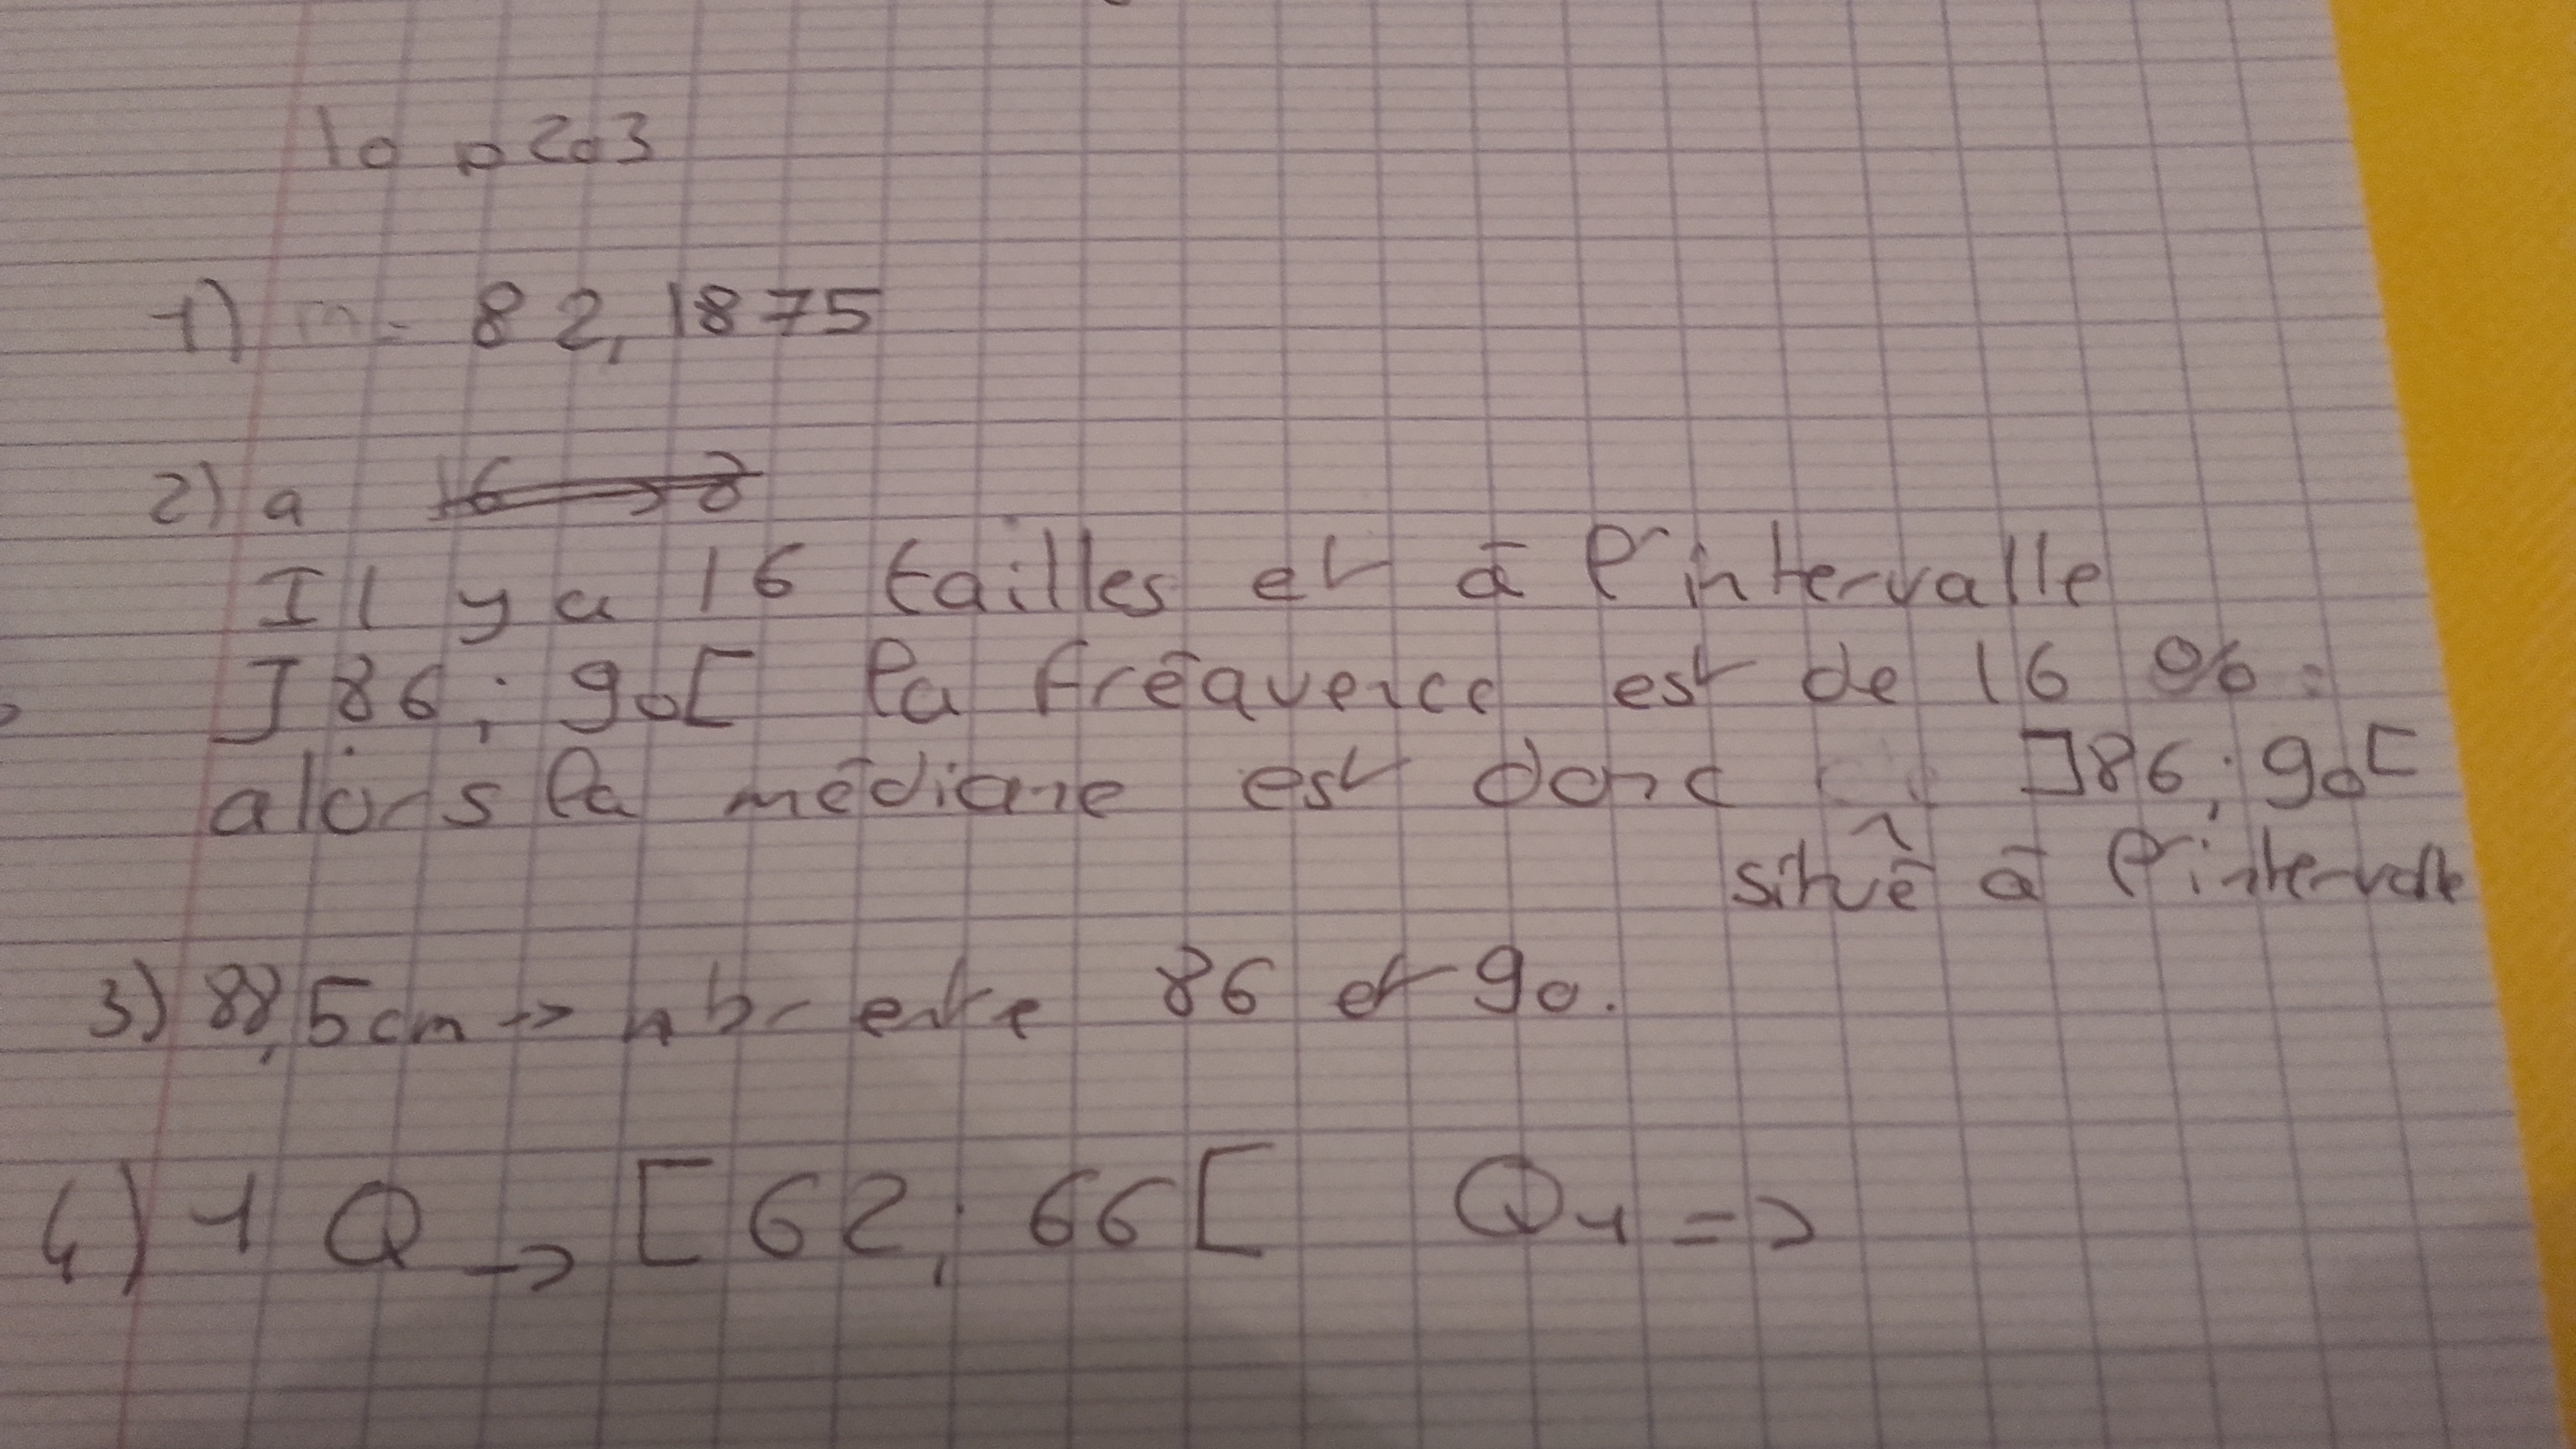 10 p 203
1) m = 82,1875
2) a 16 → 8
Il y a 16 tailles et à l'intervalle
]86 ; 90[ la fréquence est de 16 %.
alors la médiane est donc ]86 ; 90[
situé à l'intervalle
3) 88,5 cm → nbr entre 86 et 90.
4) 1 Q → [62 ; 66[ Q1 =>